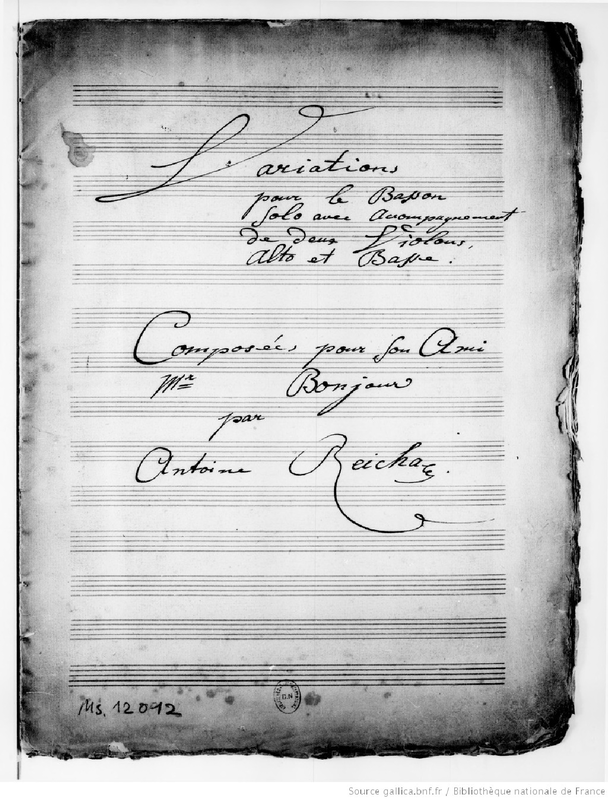 Variations
pour le Basson
Solo avec Acompagnement
de deux Violons,
Alto et Basse.
Composées pour son Ami
Mr Bonjour
par
Antoine Reicha.
Ms. 12092
Source gallica.bnf.fr / Bibliothèque nationale de France